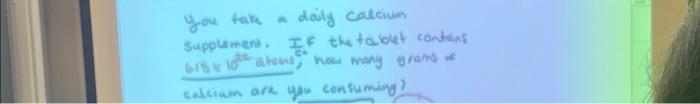 You take a daily calcium
supplement. If the tablet contains
atoms, Ca how many grams of
calcium are you consuming?